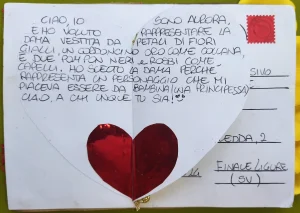 CIAO, IO SONO AURORA,
E HO VOLUTO RAPPRESENTARE LA
DAMA VESTITA DA PETALI DI FIORI
GIALLI, UN CORDONCINO ORO COME COLLANA,
E DUE POM PON NERI E ROSSI COME
CAPELLI. HO SCELTO LA DAMA PERCHÉ
RAPPRESENTA UN PERSONAGGIO CHE MI
PIACEVA ESSERE DA BAMBINA (UNA PRINCIPESSA)
CIAO, A CHIUNQUE TU SIA!
SIVO
2
FINALE LIGURE
(SV)